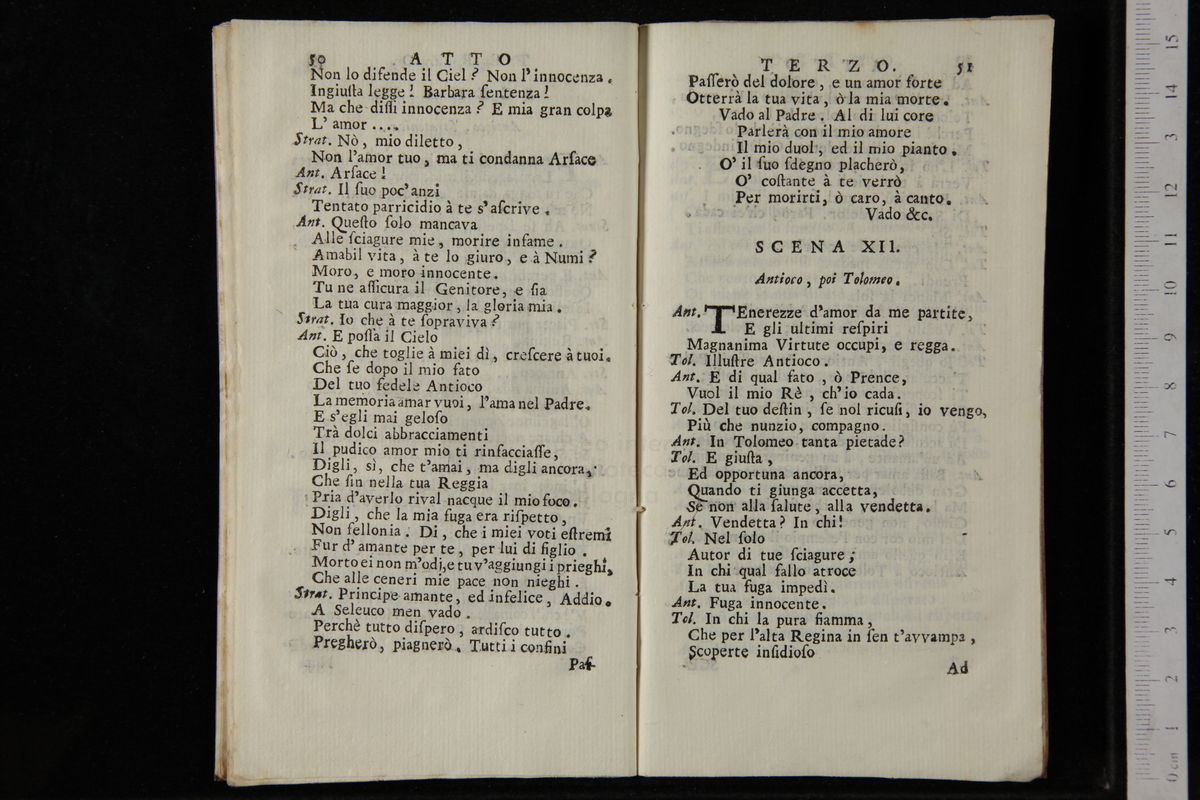 50 ATTO
Non lo difende il Ciel? Non l'innocenza.
Ingiuſta legge! Barbara ſentenza!
Ma che diſſi innocenza? E mia gran colpa
L'amor ....
Strat. Nò, mio diletto,
Non l'amor tuo, ma ti condanna Arſace
Ant. Arſace!
Strat. Il ſuo poc'anzi
Tentato parricidio à te s'aſcrive.
Ant. Queſto ſolo mancava
Alle ſciagure mie, morire infame.
Amabil vita, à te lo giuro, e à Numi?
Moro, e moro innocente.
Tu ne aſſicura il Genitore, e ſia
La tua cura maggior, la gloria mia.
Strat. Io che à te ſopraviva?
Ant. E poſſa il Cielo
Ciò, che toglie à miei dì, creſcere à tuoi.
Che ſe dopo il mio fato
Del tuo fedele Antioco
La memoria amar vuoi, l'ama nel Padre.
E s'egli mai geloſo
Trà dolci abbracciamenti
Il pudico amor mio ti rinfacciaſſe,
Digli, sì, che t'amai, ma digli ancora,
Che fin nella tua Reggia
Pria d'averlo rival nacque il mio foco.
Digli, che la mia fuga era riſpetto,
Non fellonia. Di, che i miei voti eſtremi
Fur d'amante per te, per lui di figlio.
Morto ei non m'odj, e tu v'aggiungi i prieghi,
Che alle ceneri mie pace non nieghi.
Strat. Principe amante, ed infelice, Addio.
A Seleuco men vado.
Perchè tutto diſpero, ardiſco tutto.
Pregherò, piagnerò. Tutti i confini
Paſ-
TERZO. 51
Paſſerò del dolore, e un amor forte
Otterrà la tua vita, ò la mia morte.
Vado al Padre. Al di lui core
Parlerà con il mio amore
Il mio duol, ed il mio pianto.
O' il ſuo ſdegno placherò,
O' coſtante à te verrò
Per morirti, ò caro, à canto.
Vado &c.
SCENA XII.
Antioco, poi Tolomeo.
Ant. TEnerezze d'amor da me partite,
E gli ultimi reſpiri
Magnanima Virtute occupi, e regga.
Tol. Illuſtre Antioco.
Ant. E di qual fato, ò Prence,
Vuol il mio Rè, ch'io cada.
Tol. Del tuo deſtin, ſe nol ricuſi, io vengo,
Più che nunzio, compagno.
Ant. In Tolomeo tanta pietade?
Tol. E giuſta,
Ed opportuna ancora,
Quando ti giunga accetta,
Se non alla ſalute, alla vendetta.
Ant. Vendetta? In chi!
Tol. Nel ſolo
Autor di tue ſciagure;
In chi qual fallo atroce
La tua fuga impedì.
Ant. Fuga innocente.
Tol. In chi la pura fiamma,
Che per l'alta Regina in ſen t'avvampa,
Scoperte inſidioſo
Ad